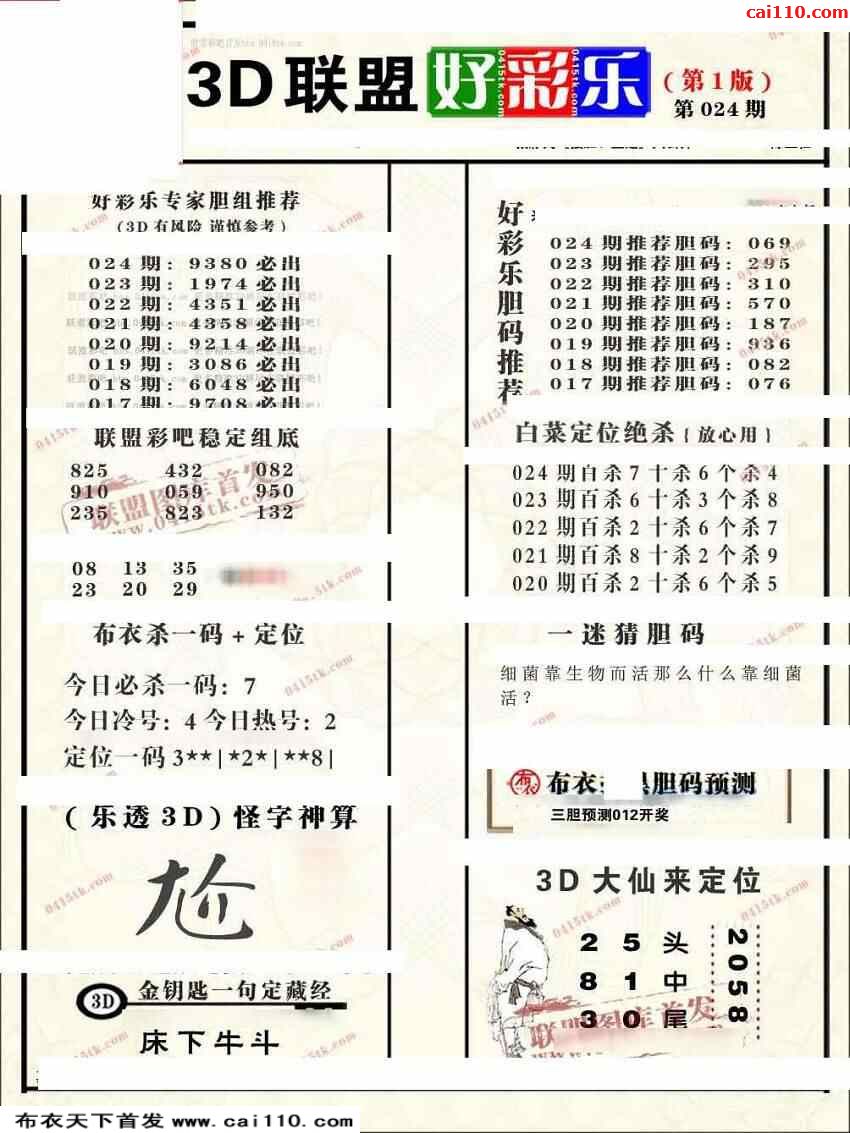 cai110.com
3D联盟好彩乐
(第1版)
第024期
好彩乐专家胆组推荐
(3D有风险 谨慎参考)
024期: 9380必出
023期: 1974必出
022期: 4351必出
021期: 4358必出
020期: 9214必出
019期: 3086必出
018期: 6048必出
017期: 9708必出
联盟彩吧稳定组底
825 432 082
910 059 950
235 823 132
08 13 35
23 20 29
布衣杀一码+定位
今日必杀一码: 7
今日冷号: 4 今日热号: 2
定位一码 3**|*2*|**8|
(乐透3D)怪字神算
尬
3D 金钥匙一句定藏经
床下牛斗
好彩乐胆码推荐
024期推荐胆码: 069
023期推荐胆码: 295
022期推荐胆码: 310
021期推荐胆码: 570
020期推荐胆码: 187
019期推荐胆码: 936
018期推荐胆码: 082
017期推荐胆码: 076
白菜定位绝杀{放心用}
024期自杀7十杀6个杀4
023期百杀6十杀3个杀8
022期百杀2十杀6个杀7
021期百杀8十杀2个杀9
020期百杀2十杀6个杀5
一迷猜胆码
细菌靠生物而活那么什么靠细菌
活?
布衣 胆码预测
三胆预测012开奖
3D大仙来定位
2 5 头
8 1 中
3 0 尾
2058
联盟图库首发
www.0415tk.com
0415tk.com
布衣天下首发 www.cai110.com